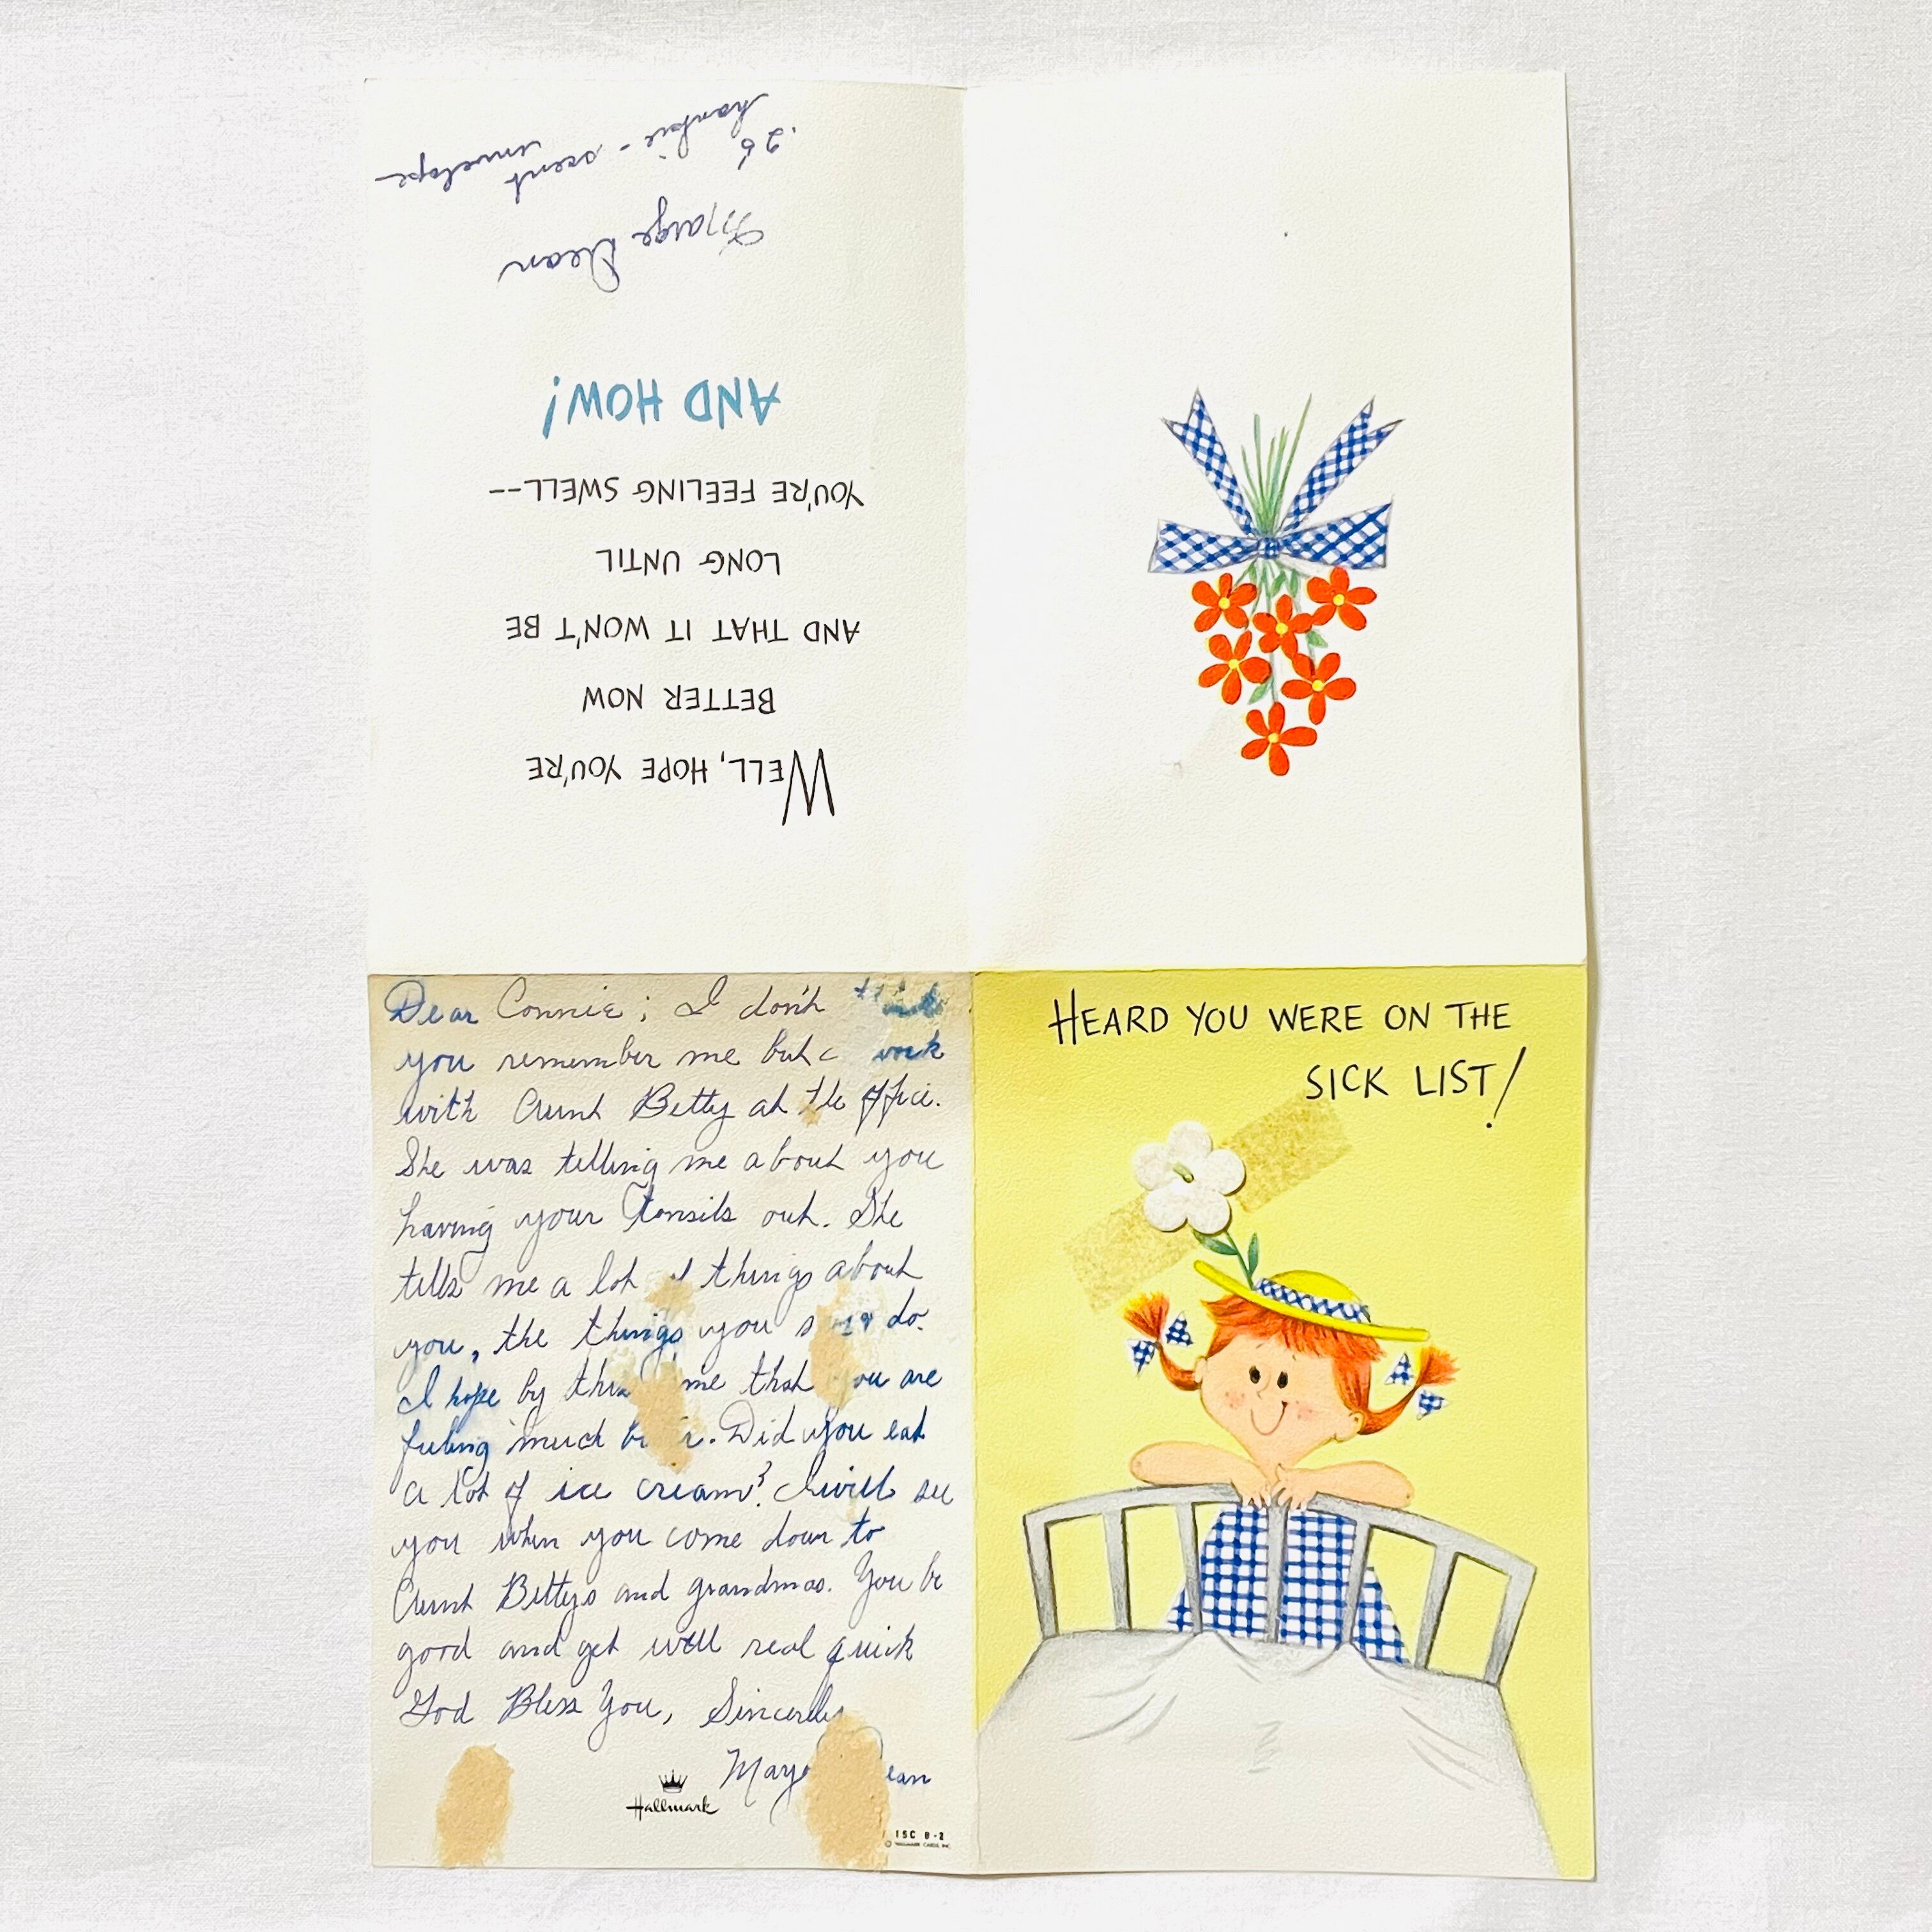 HEARD YOU WERE ON THE
SICK LIST!
WELL, HOPE YOU'RE
BETTER NOW
AND THAT IT WON'T BE
LONG UNTIL
YOU'RE FEELING SWELL--
AND HOW!
Marge Dean
.26
hankie - scent
envelope
Dear Connie; I don't think
you remember me but work
with Aunt Betty at the office.
She was telling me about you
having your Tonsils out. She
tells me a lot of things about
you, the things you say do.
I hope by this me that you are
feeling much better. Did you eat
a lot of ice cream? I will see
you when you come down to
Aunt Bettys and grandmas. You be
good and get well real quick
God Bless You, Sincerely
Marge Dean
Hallmark
15C 8-2
© HALLMARK CARDS, INC.